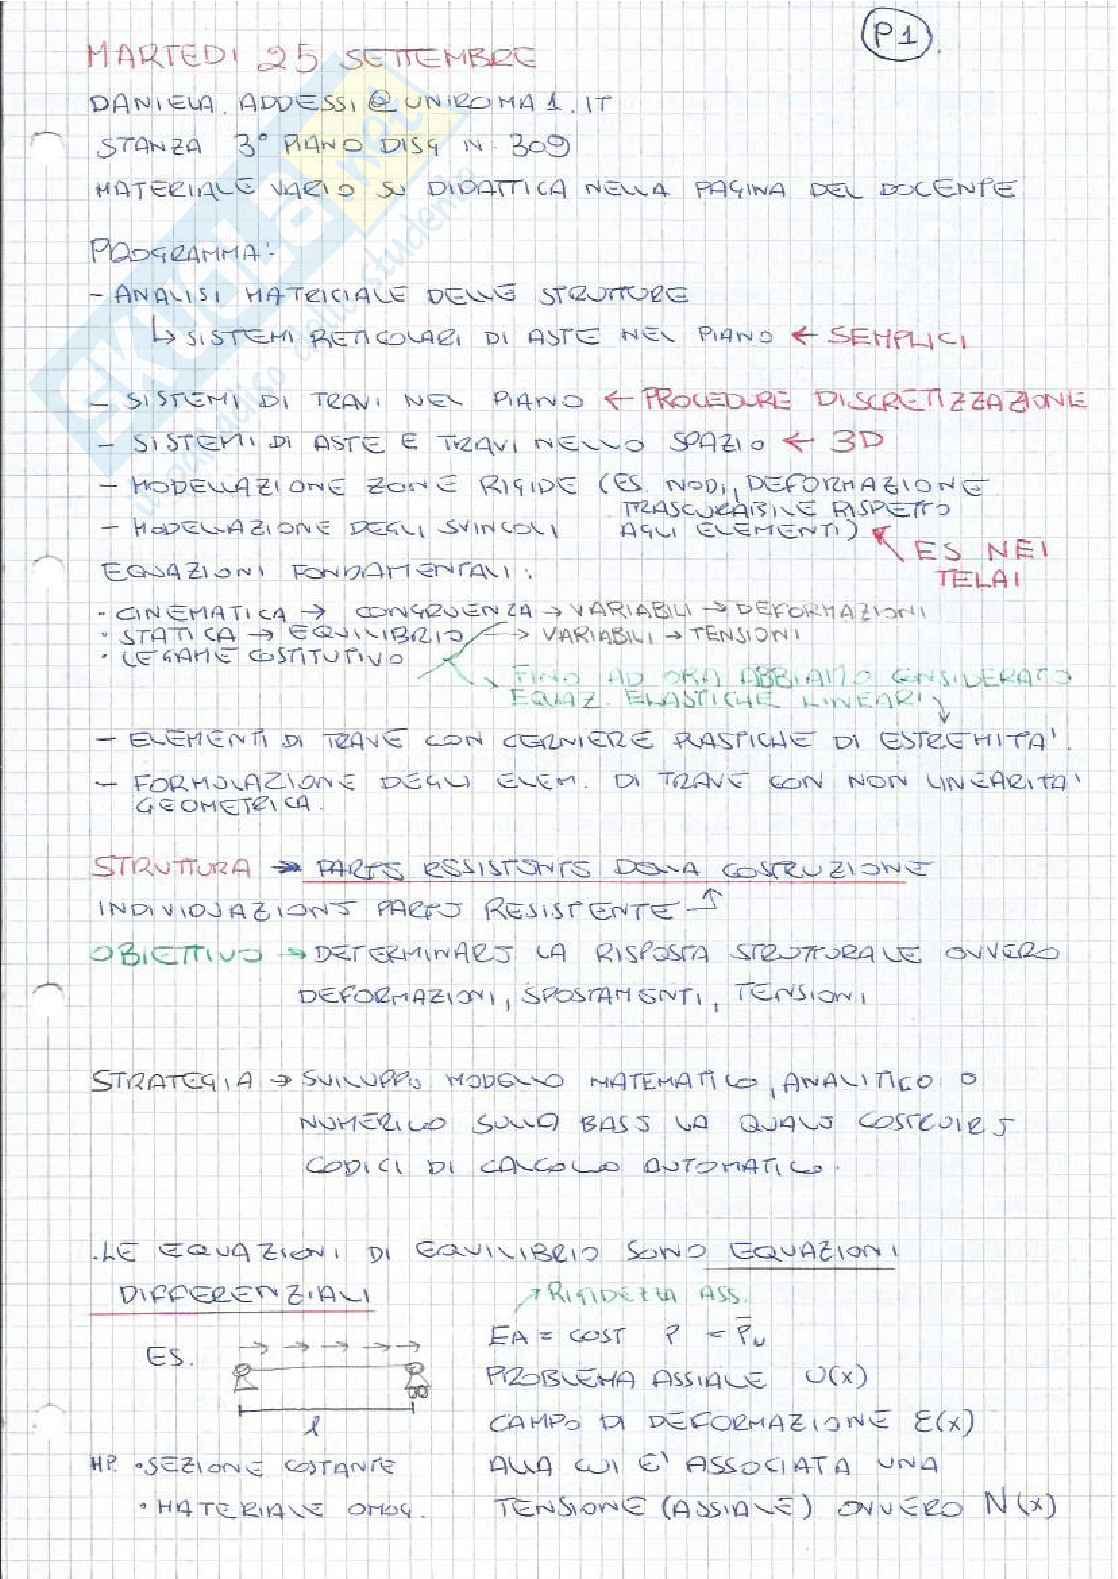 P1
MARTEDI 25 SETTEMBRE
DANIELA.ADDESSI@UNIROMA1.IT
STANZA 3° PIANO DISG N. 309
MATERIALE VARIO SU DIDATTICA NELLA PAGINA DEL DOCENTE
PROGRAMMA:
- ANALISI MATRICIALE DELLE STRUTTURE
↳ SISTEMI RETICOLARI DI ASTE NEL PIANO ← SEMPLICI
- SISTEMI DI TRAVI NEL PIANO ← PROCEDURE DISCRETIZZAZIONE
- SISTEMI DI ASTE E TRAVI NELLO SPAZIO ← 3D
- MODELLAZIONE ZONE RIGIDE (ES. NODI, DEFORMAZIONE
TRASCURABILE RISPETTO
- MODELLAZIONE DEGLI SVINCOLI AGLI ELEMENTI)
ES NEI
TELAI
EQUAZIONI FONDAMENTALI:
• CINEMATICA → CONGRUENZA → VARIABILI → DEFORMAZIONI
• STATICA → EQUILIBRIO → VARIABILI → TENSIONI
• LEGAME COSTITUTIVO
FINO AD ORA ABBIAMO CONSIDERATO
EQUAZ. ELASTICHE LINEARI
- ELEMENTI DI TRAVE CON CERNIERE PLASTICHE DI ESTREMITA'.
- FORMULAZIONE DEGLI ELEM. DI TRAVE CON NON LINEARITA'
GEOMETRICA.
STRUTTURA → PARTE RESISTENTE DELLA COSTRUZIONE
INDIVIDUAZIONE PARTE RESISTENTE
OBIETTIVO → DETERMINARE LA RISPOSTA STRUTTURALE OVVERO
DEFORMAZIONI, SPOSTAMENTI, TENSIONI
STRATEGIA → SVILUPPO MODELLO MATEMATICO, ANALITICO O
NUMERICO SULLA BASE LA QUALE COSTRUIRE
CODICI DI CALCOLO AUTOMATICO.
. LE EQUAZIONI DI EQUILIBRIO SONO EQUAZIONI
DIFFERENZIALI
RIGIDEZZA ASS.
ES.
EA = COST P = P̄u
PROBLEMA ASSIALE U(x)
l
CAMPO DI DEFORMAZIONE ε(x)
HP. • SEZIONE COSTANTE
ALLA CUI E' ASSOCIATA UNA
• MATERIALE OMOG.
TENSIONE (ASSIALE) OVVERO N(x)